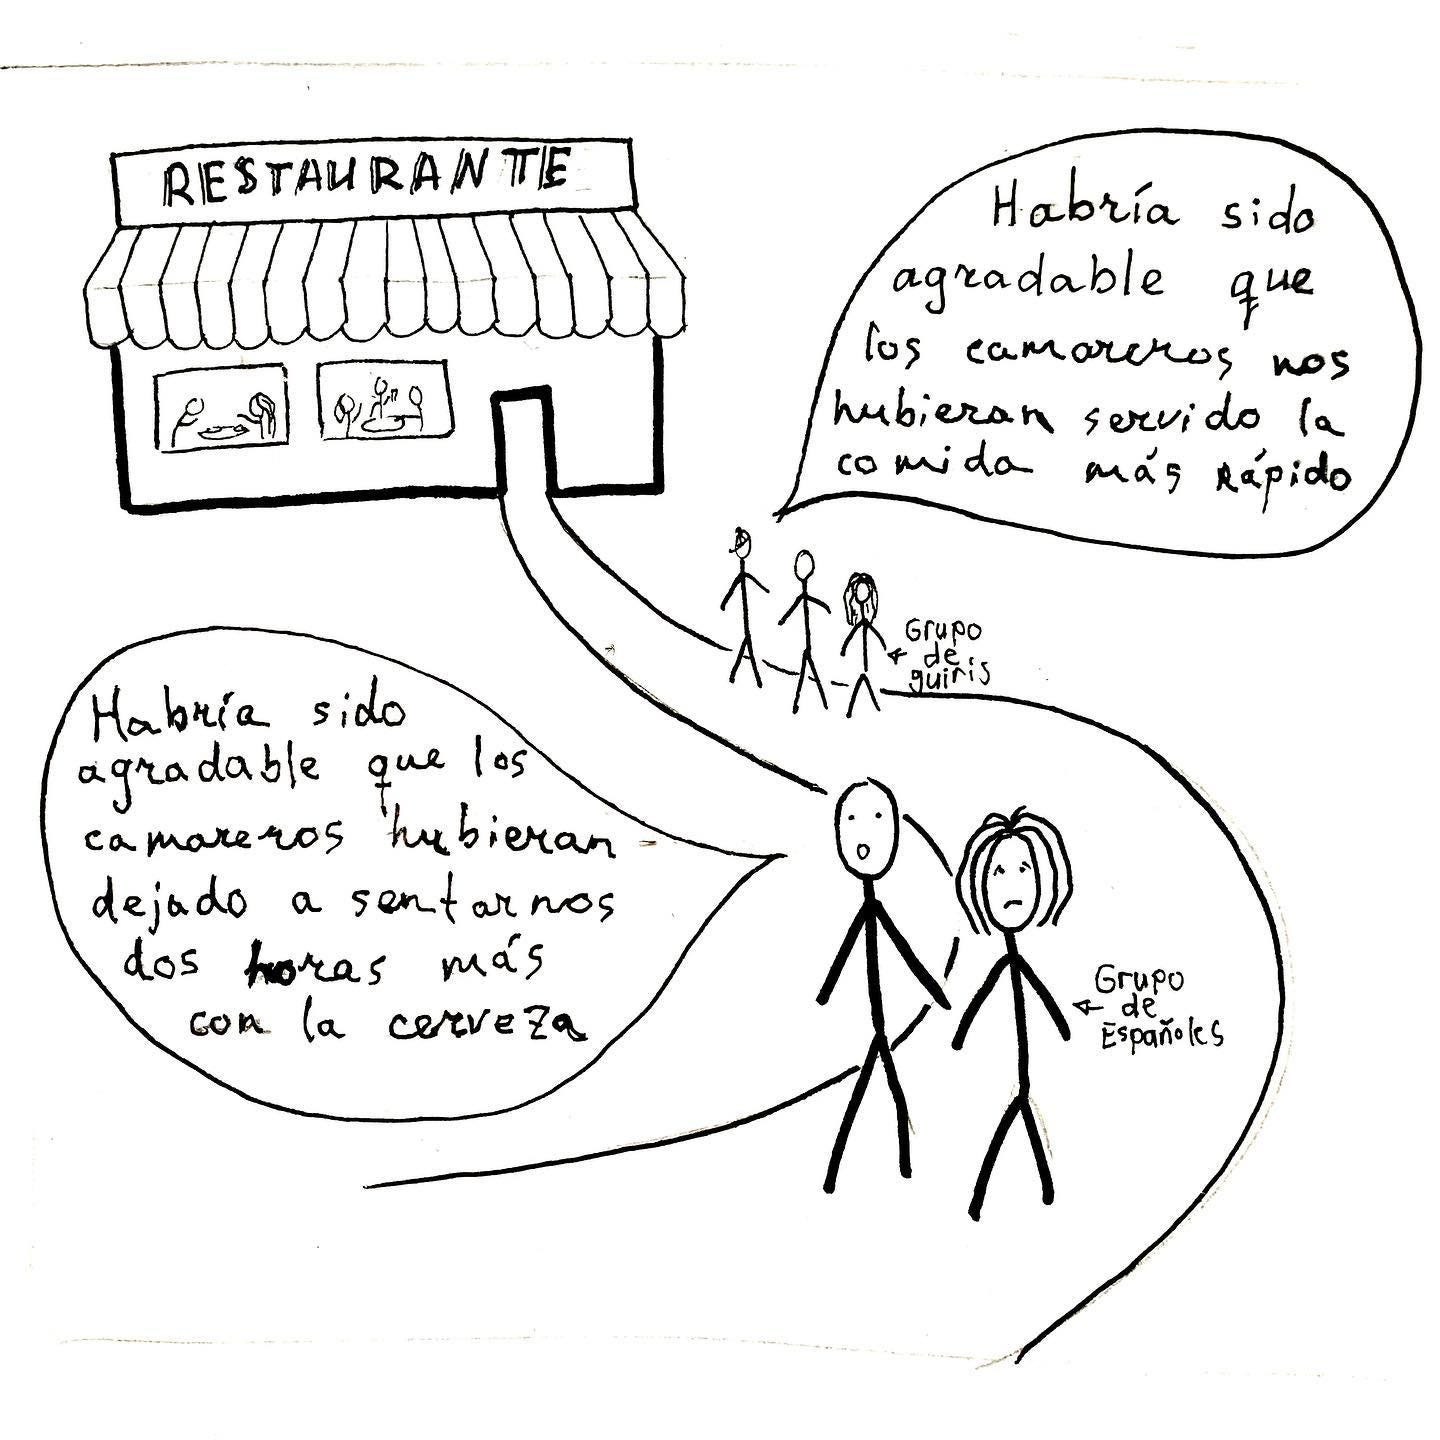 RESTAURANTE
Habría sido
agradable que
los camareros nos
hubieran servido la
comida más rápido
Grupo
de
guiris
Habría sido
agradable que los
camareros hubieran
dejado a sentarnos
dos horas más
con la cerveza
Grupo
de
Españoles